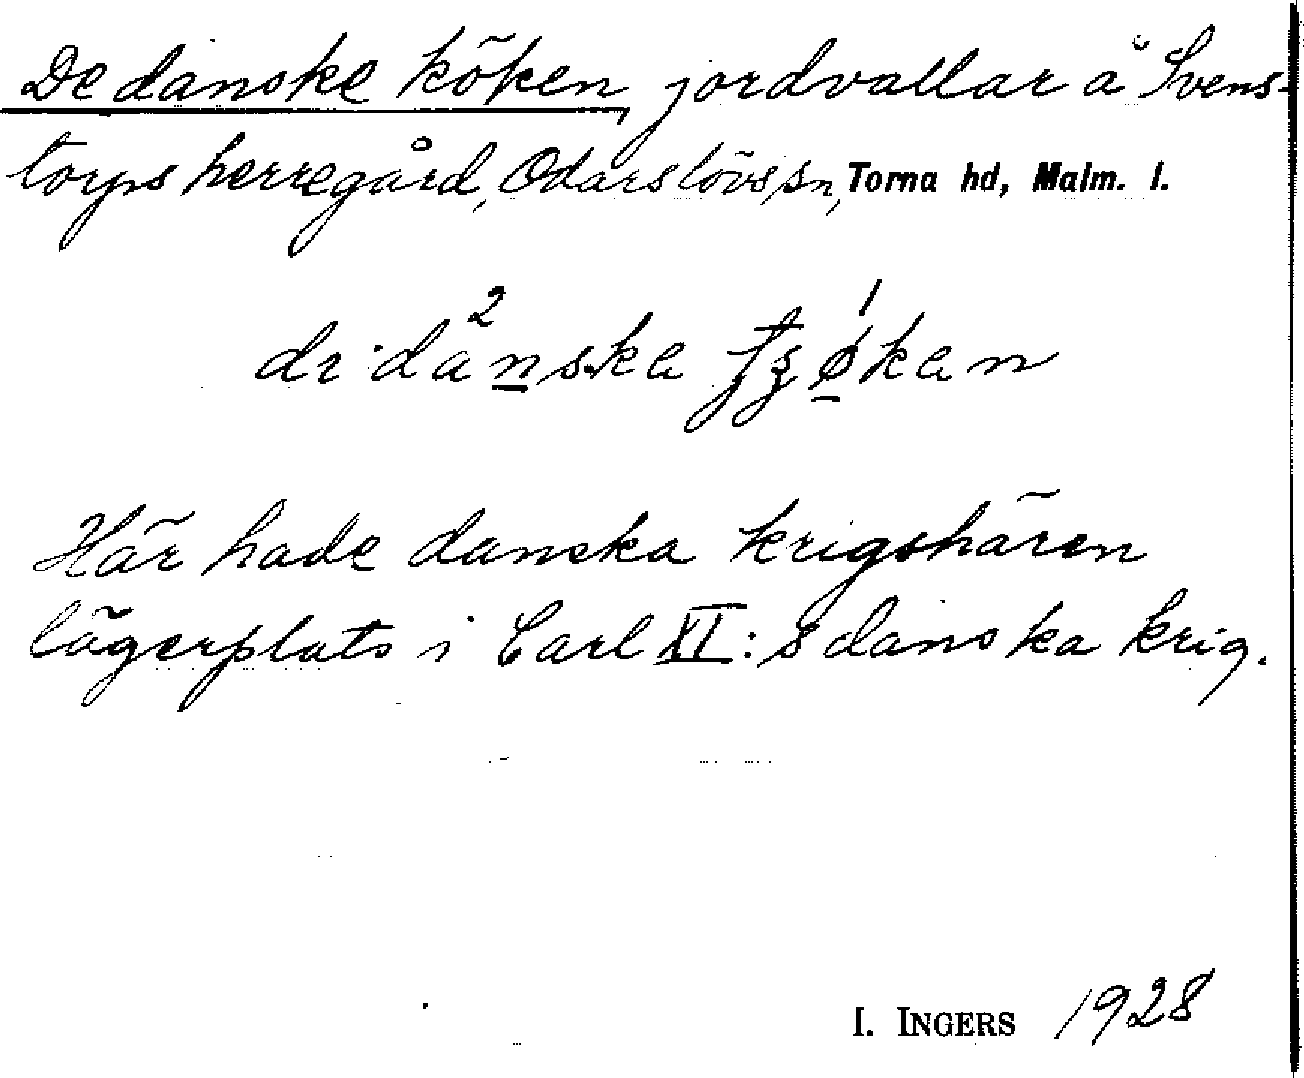 De danske köken, jordvallar å Svens-
torps herregård, Odarslövs sn, Torna hd, Malm. l.
Här hade danska krigshären
lägerplats i Carl XI:s danska krig.
I. INGERS 1928